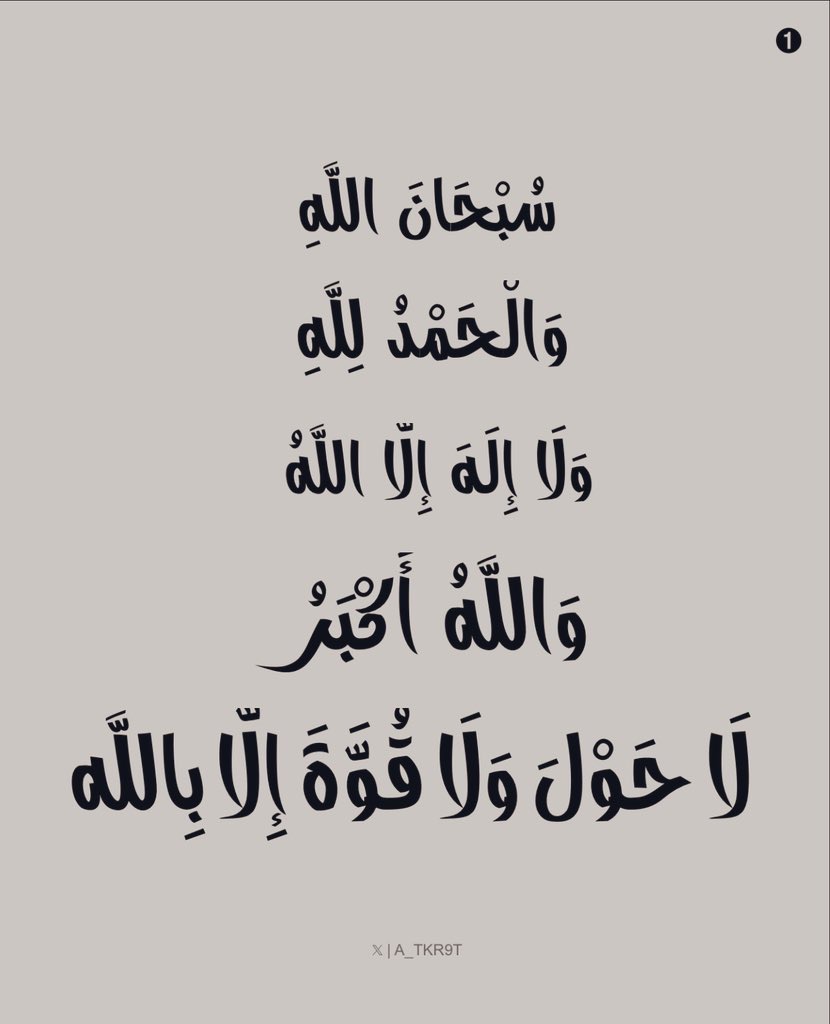 ❶
سُبْحَانَ اللَّهِ
وَالْحَمْدُ لِلَّهِ
وَلَا إِلَهَ إِلَّا اللَّهُ
وَاللَّهُ أَكْبَرُ
لَا حَوْلَ وَلَا قُوَّةَ إِلَّا بِاللَّه
𝕏 | A_TKR9T